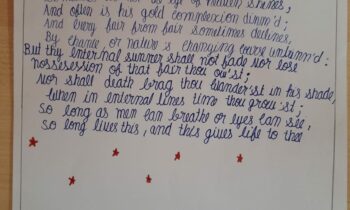 eye of heaven shines,
And often is his gold complexion dimm'd;
And every fair from fair sometimes declines,
By chance or nature's changing course untrimm'd:
But thy internal summer shall not fade nor lose
nossesession of that fair thou ow'st;
Nor shall death brag thou wandersst in his shade,
When in internal lines time thou grow'st;
So long as men can breathe or eyes can see,
So long lives this, and this gives life to thee